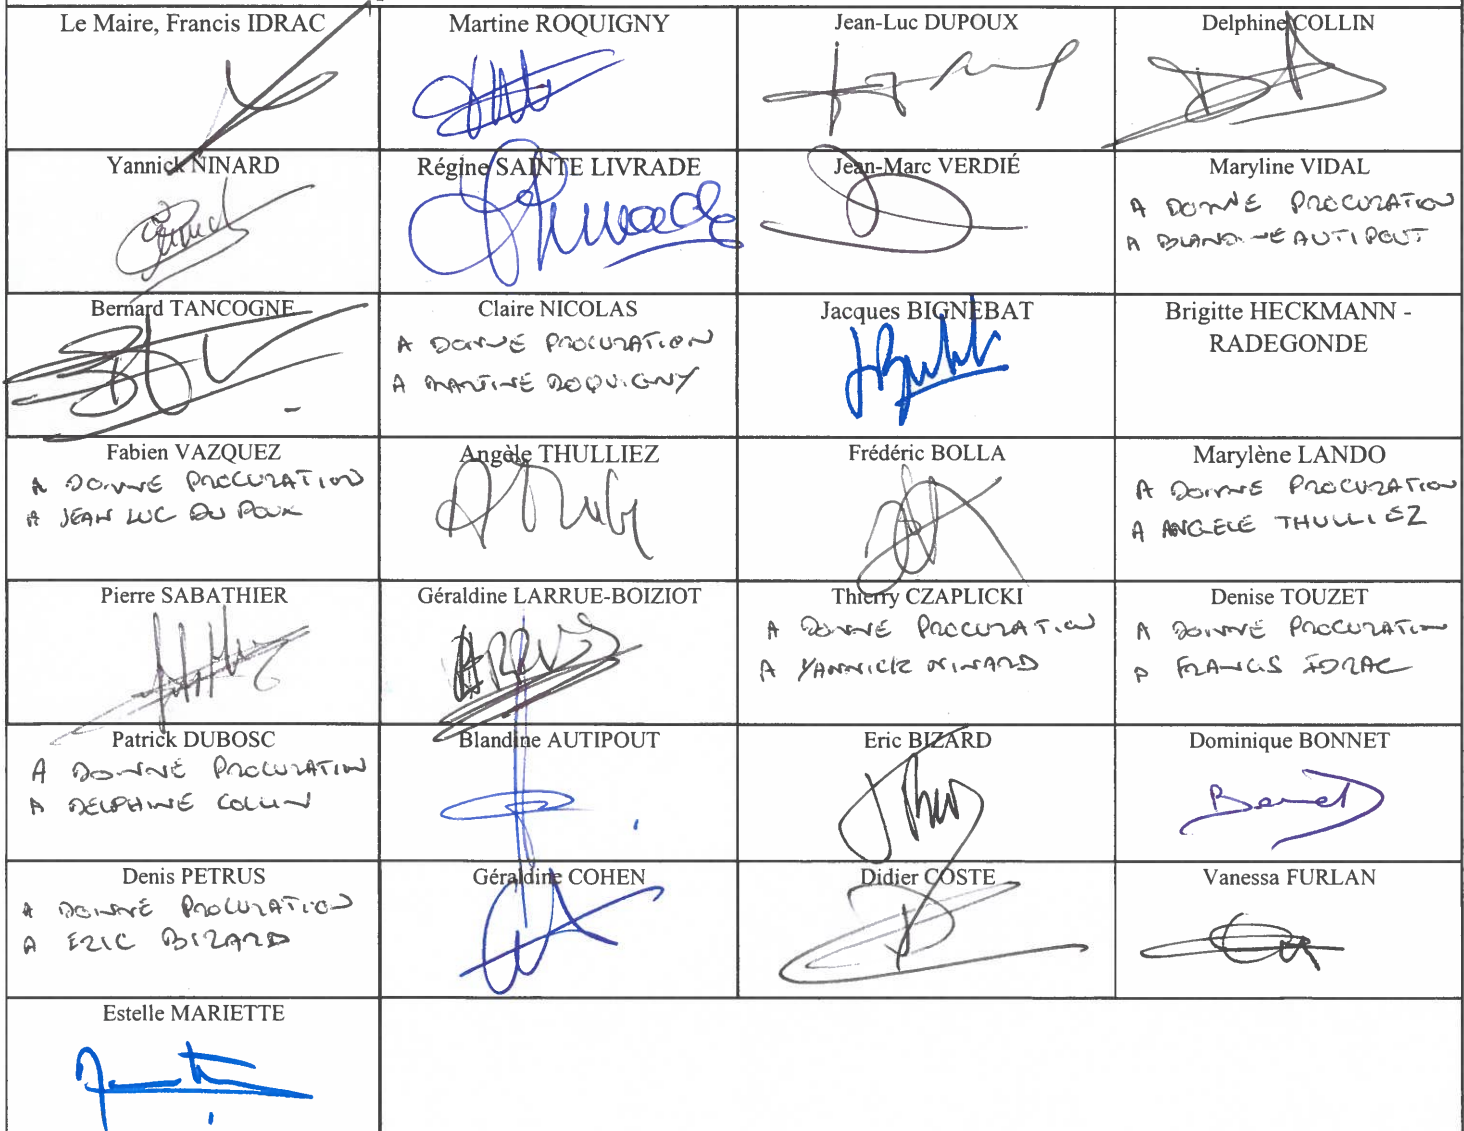 Le Maire, Francis IDRAC
Martine ROQUIGNY
Jean-Luc DUPOUX
Delphine COLLIN
Yannick NINARD
Régine SAINTE LIVRADE
Jean-Marc VERDIÉ
Maryline VIDAL
A DONNÉ PROCURATION
A BLANDINE AUTIPOUT
Bernard TANCOGNE
Claire NICOLAS
A DONNÉ PROCURATION
A MARTINE ROQUIGNY
Jacques BIGNEBAT
Brigitte HECKMANN -
RADEGONDE
Fabien VAZQUEZ
A DONNÉ PROCURATION
A JEAN LUC DUPOUX
Angèle THULLIEZ
Frédéric BOLLA
Marylène LANDO
A DONNÉ PROCURATION
A ANGELE THULLIEZ
Pierre SABATHIER
Géraldine LARRUE-BOIZIOT
Thierry CZAPLICKI
A DONNÉ PROCURATION
A YANNICK NINARD
Denise TOUZET
A DONNÉ PROCURATION
A FRANCIS IDRAC
Patrick DUBOSC
A DONNÉ PROCURATION
A DELPHINE COLLIN
Blandine AUTIPOUT
Eric BIZARD
Dominique BONNET
Denis PETRUS
A DONNÉ PROCURATION
A ERIC BIZARD
Géraldine COHEN
Didier COSTE
Vanessa FURLAN
Estelle MARIETTE